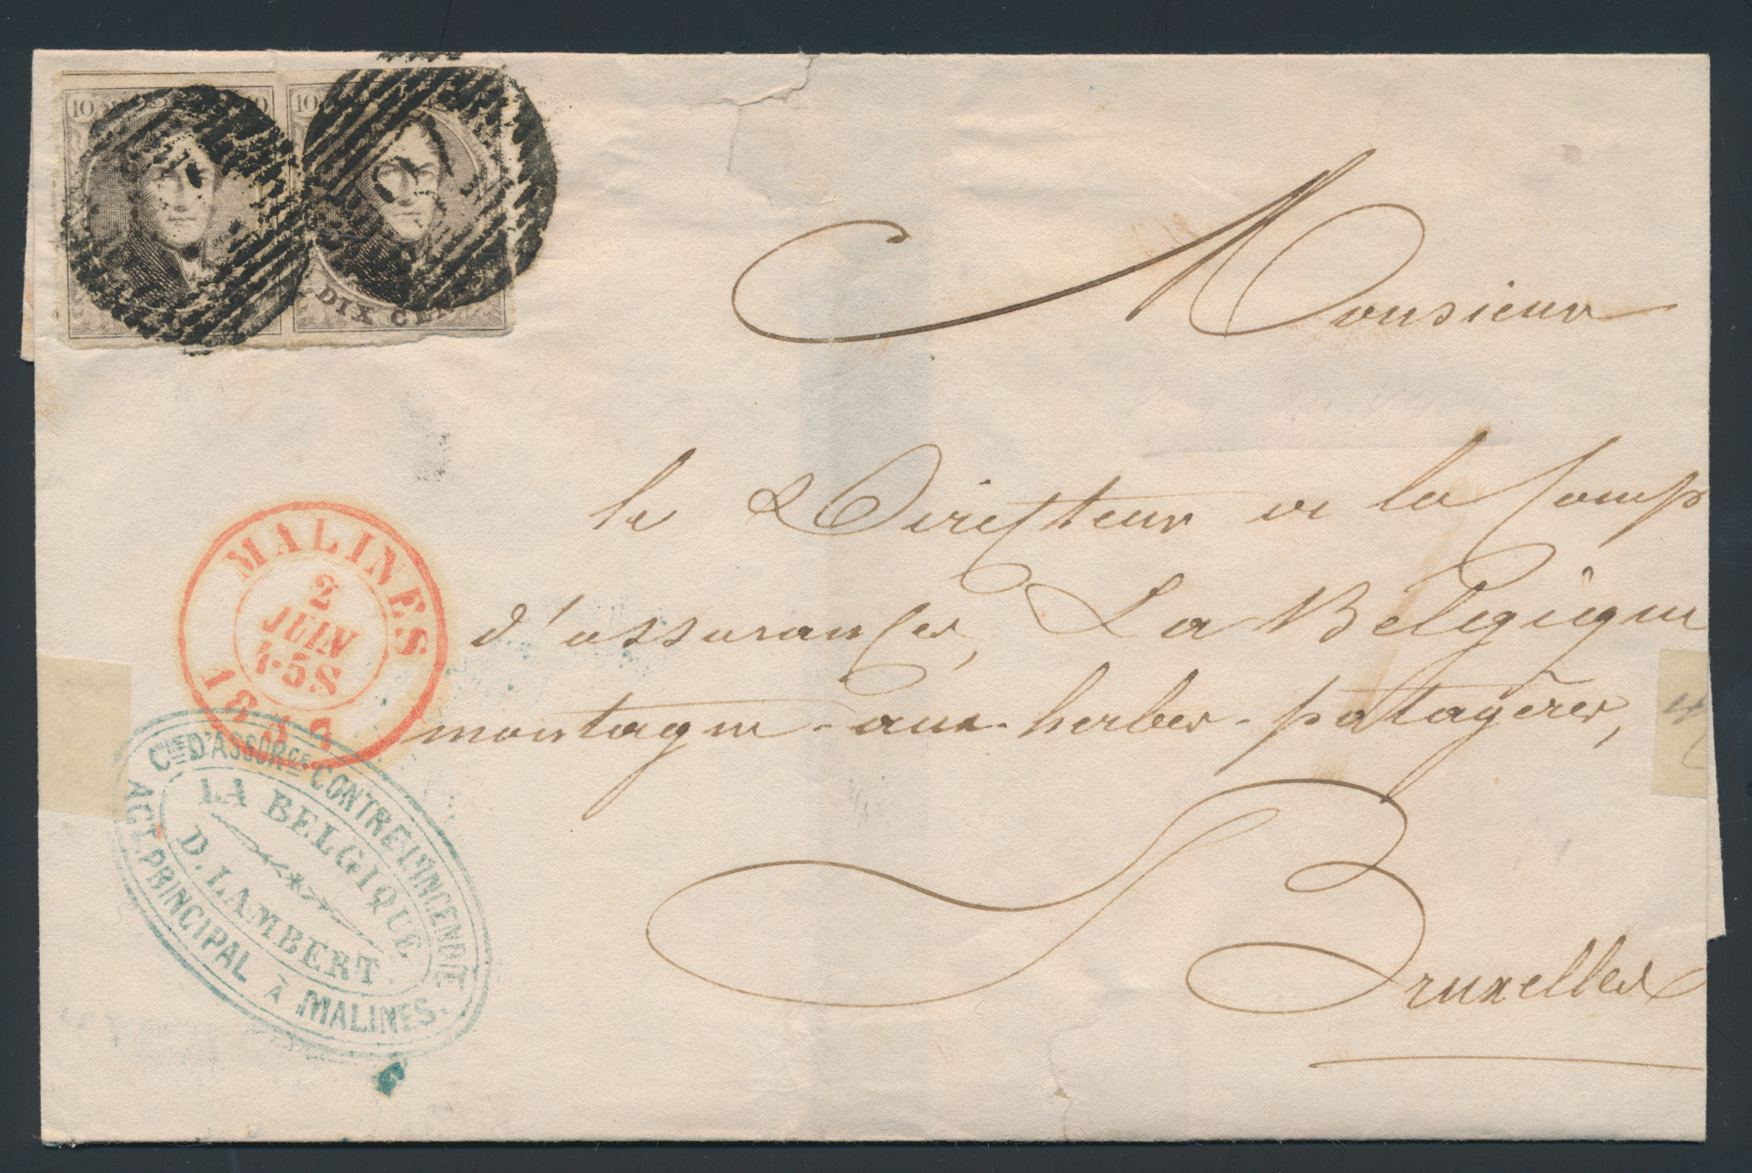 10
10
DIX CEN
Monsieur
le Directeur de la Comp
d'assurances, La Belgique
montagne-aux-herbes-potagères,
Bruxelles
MALINES
2
JUIN
185
CIE D'ASSORCE CONTRE L'INCENDIE
LA BELGIQUE
D. LAMBERT.
AGT. PRINCIPAL À MALINES.